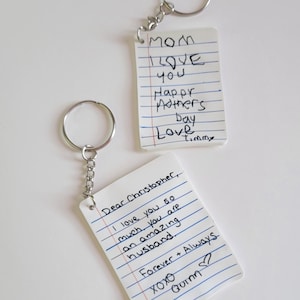 MOM
I LOVE
YOU
Happy
Mothers
Day
Love
Timmy
Dear Christopher,
I love you so
much you are
an amazing
husband
Forever + Always
XOXO
Quinn